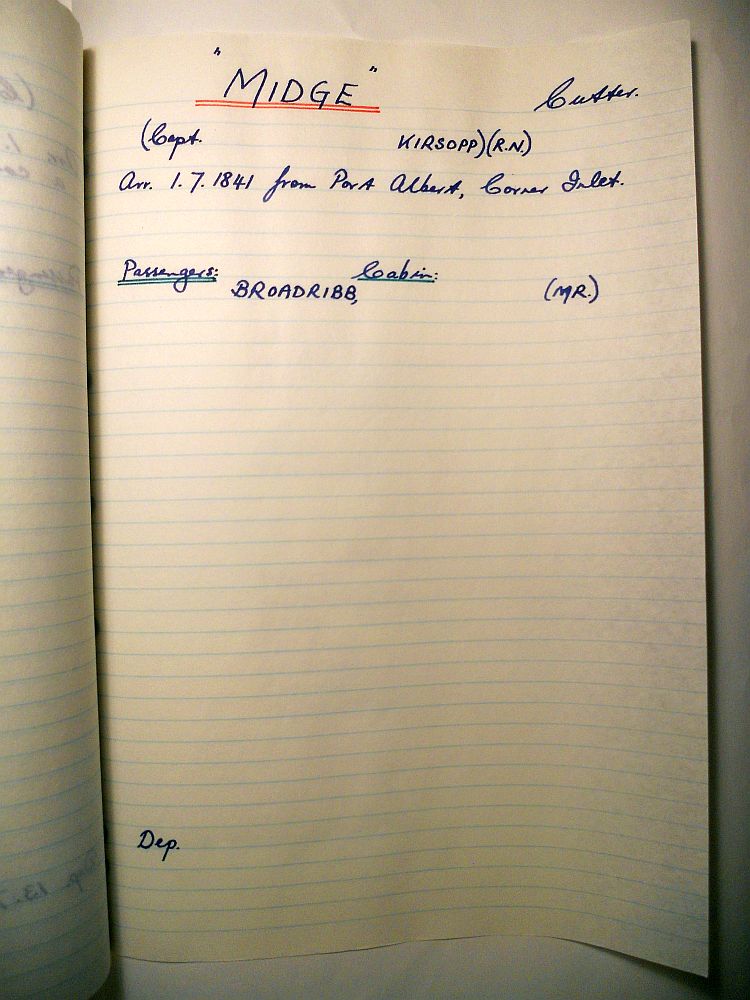 "MIDGE" Cutter.
(Capt. KIRSOPP)(R.N.)
Arr. 1.7.1841 from Port Albert, Corner Inlet.
Passengers: Cabin:
BROADRIBB, (MR.)
Dep.